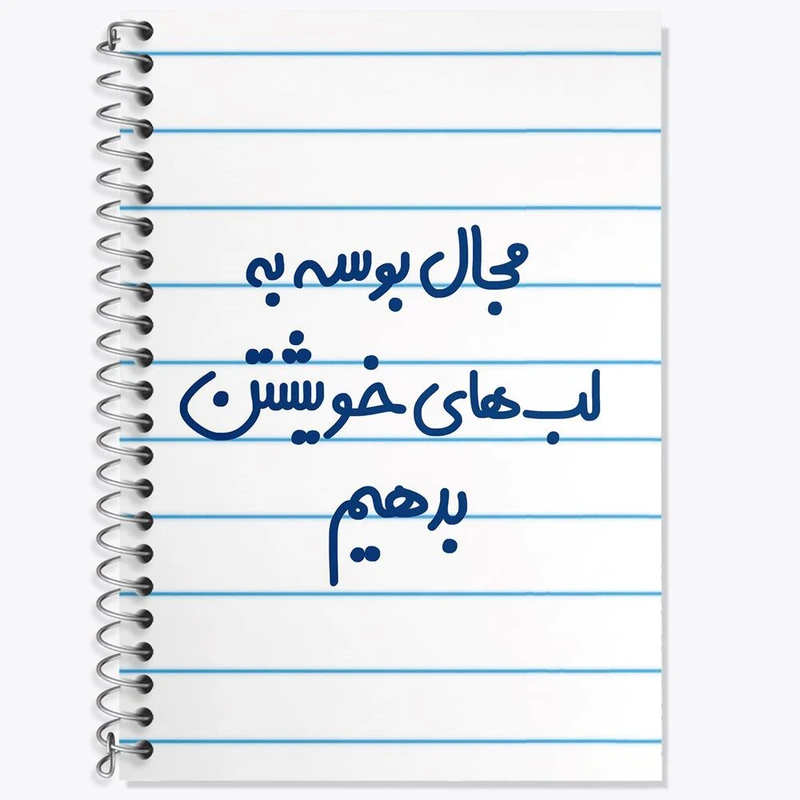 مجال بوسه به
لب‌های خویشتن
بدهیم